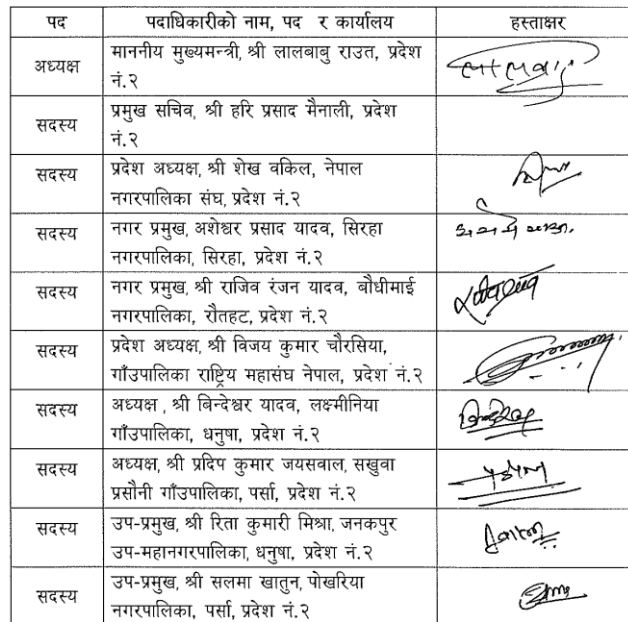 पद पदाधिकारीको नाम, पद र कार्यालय हस्ताक्षर
अध्यक्ष माननीय मुख्यमन्त्री, श्री लालबाबु राउत, प्रदेश
नं.२
सदस्य प्रमुख सचिव, श्री हरि प्रसाद मैनाली, प्रदेश
नं.२
सदस्य प्रदेश अध्यक्ष, श्री शेख वकिल, नेपाल
नगरपालिका संघ, प्रदेश नं.२
सदस्य नगर प्रमुख, अशेश्वर प्रसाद यादव, सिरहा
नगरपालिका, सिरहा, प्रदेश नं.२
सदस्य नगर प्रमुख, श्री राजिव रंजन यादव, बौधीमाई
नगरपालिका, रौतहट, प्रदेश नं.२
सदस्य प्रदेश अध्यक्ष, श्री विजय कुमार चौरसिया,
गाँउपालिका राष्ट्रिय महासंघ नेपाल, प्रदेश नं.२
सदस्य अध्यक्ष , श्री बिन्देश्वर यादव, लक्ष्मीनिया
गाँउपालिका, धनुषा, प्रदेश नं.२
सदस्य अध्यक्ष, श्री प्रदिप कुमार जयसवाल, सखुवा
प्रसौनी गाँउपालिका, पर्सा, प्रदेश नं.२
सदस्य उप-प्रमुख, श्री रिता कुमारी मिश्रा, जनकपुर
उप-महानगरपालिका, धनुषा, प्रदेश नं.२
सदस्य उप-प्रमुख, श्री सलमा खातुन, पोखरिया
नगरपालिका, पर्सा, प्रदेश नं.२